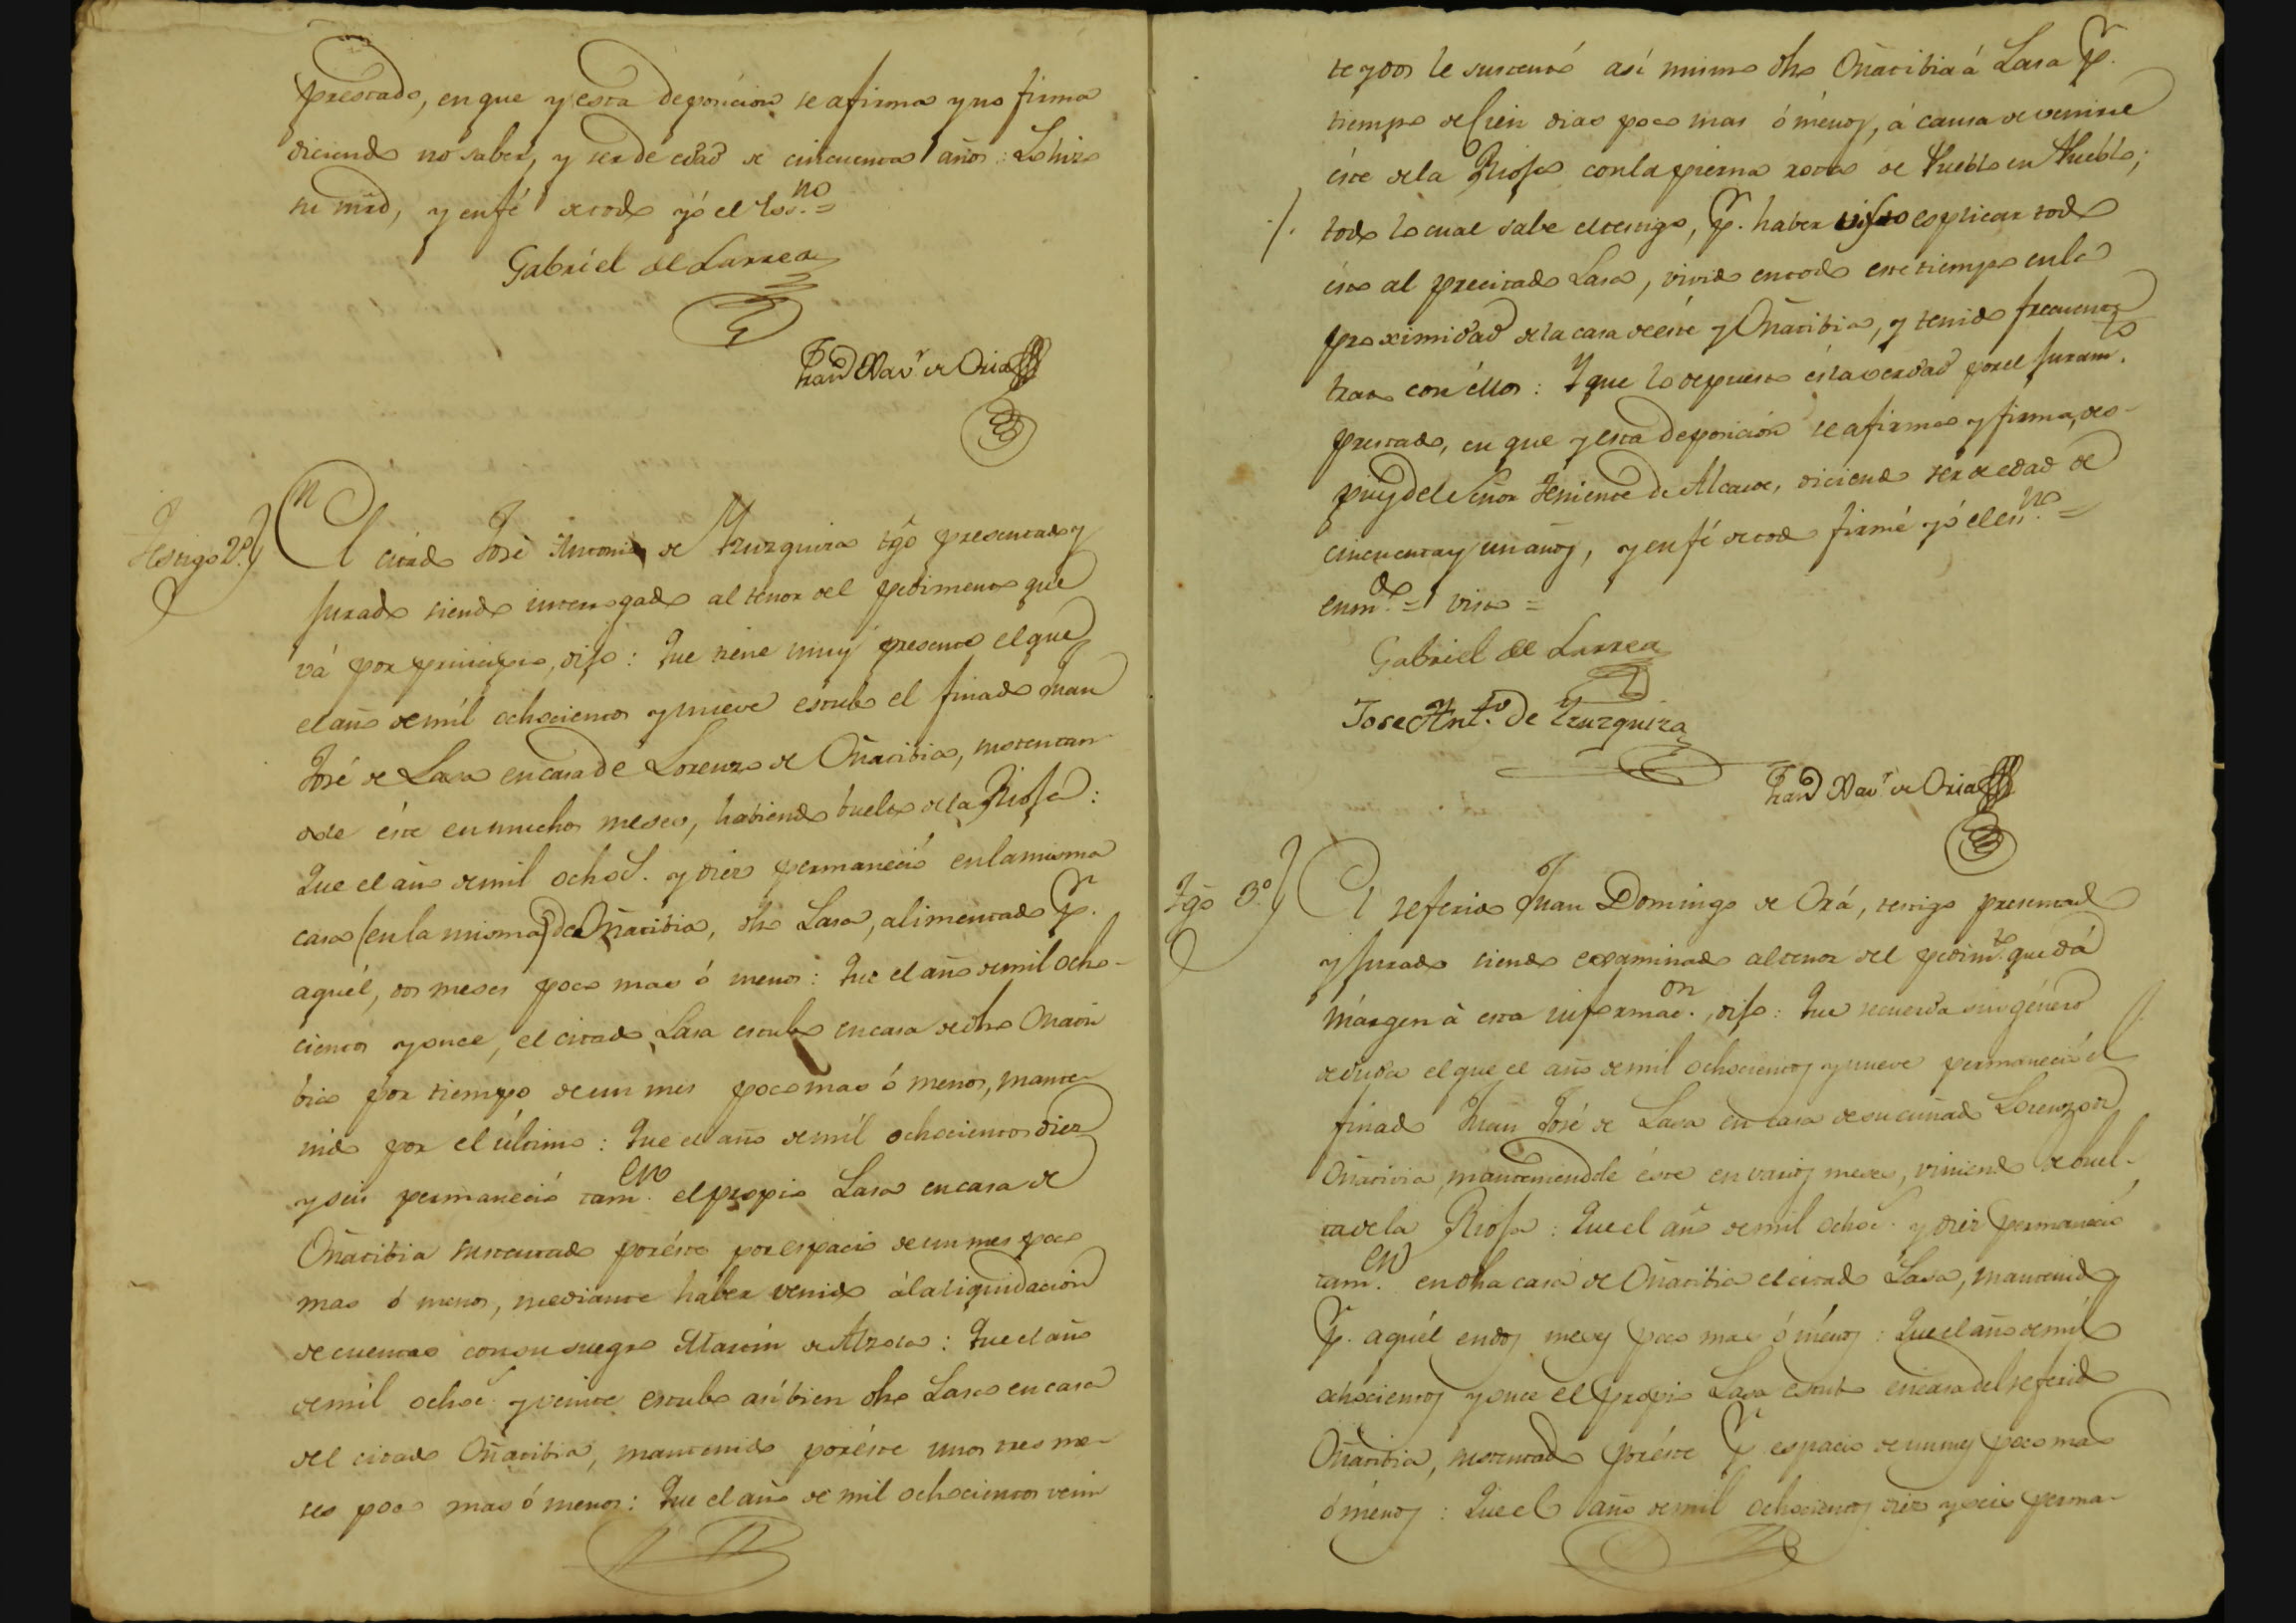 prestado, en que y esta deposicion se afirma y no firma
diciendo no saber, y ser de edad de cincuenta años: Lo hizo
su mrd, y en fé de todo yó el Ess.no =
Gabriél de Larrea
Fran.co Xav.r de Oria
Testigo 2.º
El citado José Antonio de Yzuzquiza tgô presentado y
jurado siendo interrogado al tenor del pedimento que
vá por principio, dijo: Que tiene muy presente el que
el año de mil ochocientos y nueve estubo el finado Juan
José de Lasa en casa de Lorenzo de Oñatibia, sustentan
dole éste en muchos meses, habiendo buelto de la Rioja:
Que el año de mil ochoc.s y diez permaneció en la misma
casa (en la misma) de Oñatibia, dho Lasa, alimentado p.r
aquél, dos meses poco mas ó menos: Que el año de mil ocho-
cientos y once, el citado Lasa estubo en casa de dho Oñati
bia por tiempo de un mes poco mas ó menos, mante-
nido por el último: Que el año de mil ochocientos diez
y seis permaneció tam.en el propio Lasa en casa de
Oñatibia sustentado por éste por espacio de un mes poco
mas ó menos, mediante haber venido á la liquidación
de cuentas con su suegro Martin de Alzola: Que el año
de mil ochoc.s y veinte estubo asi bien dho Lasa en casa
del citado Oñatibia, mantenido por éste unos tres me-
ses poco mas ó menos: Que el año de mil ochocientos vein
te y dos le sustentó así mismo dho Oñatibia á Lasa p.r
tiempo de cien dias poco mas ó ménos, á causa de venirse
éste de la Rioja con la pierna rota de Pueblo en Pueblo;
todo lo cual sabe el testigo, p.r haber visto esplicar todo
ésto al precitado Lasa, vivido en todo este tiempo en la
proximidad de la casa de éste y Oñatibia, y tenido frecuente
trato con éllos: Y que lo depuesto és la verdad por el juram.to
prestado, en que y esta deposición se afirma y firma, des-
pues del Señor Teniente de Alcalde, diciendo ser de edad de
cincuenta y un años, y en fé de todo firmé yó el ess.no =
enm.do = visto =
Gabriel de Larrea
Jose Ant.o de Yzuzquiza
Fran.co Xav.r de Oria
Tgô 3.º
El referido Juan Domingo de Orá, testigo presentado
y jurado siendo examinado al tenor del pedim.to que dá
márgen à esta informac.on, dijo: Que recuerda sin género
de duda el que el año de mil ochocientos y nueve permaneció el
finado Juan José de Lasa en casa de su cuñado Lorenzo de
Oñativia, manteniendole éste en varios meses, viniendo de buel-
ta de la Rioja: Que el año de mil ochoc.s y diez permaneció
tam.en en dha casa de Oñatibia el citado Lasa, mantenido
p.r aquél en dos meses poco mas ó ménos: Que el año de mil
ochocientos y once el propio Lasa estubo en casa del referido
Oñatibia, sustentado por éste p.r espacio de un mes poco mas
ó ménos: Que el año de mil ochocientos diez y seis perma-